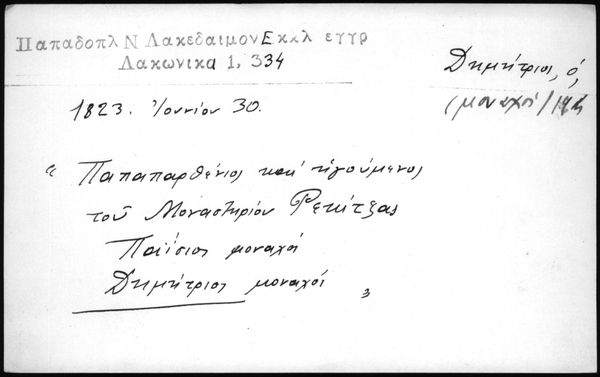 Παπαδοπλ Ν Λακεδαιμον Εκκλ εγγρ
Λακωνικα 1, 334
Δημήτριος, ὁ,
(μοναχοί)
1823. Ἰουνίου 30.
“ Παπαπαρθένιος καὶ ἡγούμενος
τοῦ Μοναστηρίου Ρεκίτζας
Παΐσιος μοναχοί
Δημήτριος μοναχοί „